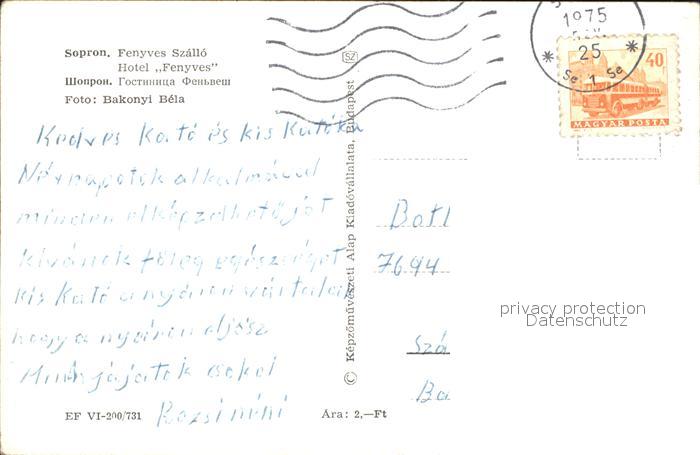 Sopron. Fenyves Szálló
Hotel „Fenyves”
Шопрон. Гостиница Феньвеш
Foto: Bakonyi Béla
SZ
1975
25
Se 1 Se
40
MAGYAR POSTA
Kedves Kató és kis Katóka
Névnapotok alkalmával
minden elképzelhető jót
kívánok főleg egészséget
kis Kató a nyáron vártalak
hogy a nyáron eljösz
Mindnyájatok csókol
Rozsi néni
© Képzőművészeti Alap Kiadóvállalata, Budapest
Batl
7694
Szá
Ba
privacy protection
Datenschutz
EF VI-200/731
Ára: 2,—Ft